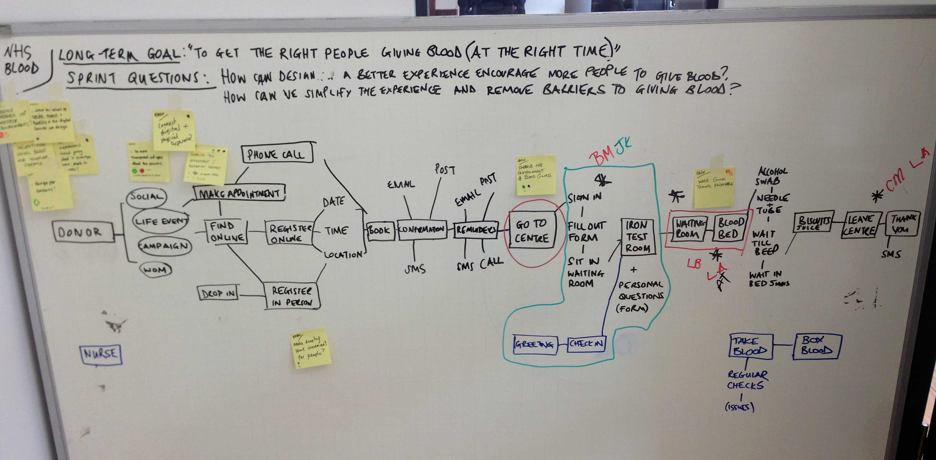 NHS
BLOOD
LONG-TERM GOAL: "TO GET THE RIGHT PEOPLE GIVING BLOOD (AT THE RIGHT TIME)"
SPRINT QUESTIONS: HOW CAN DESIGN... A BETTER EXPERIENCE ENCOURAGE MORE PEOPLE TO GIVE BLOOD?
HOW CAN WE SIMPLIFY THE EXPERIENCE AND REMOVE BARRIERS TO GIVING BLOOD?
DONOR
SOCIAL
LIFE EVENT
CAMPAIGN
WOM
PHONE CALL
MAKE APPOINTMENT
FIND
ONLINE
DROP IN
REGISTER
ONLINE
REGISTER
IN PERSON
DATE
TIME
LOCATION
BOOK
EMAIL
POST
CONFIRMATION
SMS
EMAIL
POST
REMINDED
SMS
CALL
GO TO
CENTRE
BM JK
SIGN IN
FILL OUT
FORM
SIT IN
WAITING
ROOM
IRON
TEST
ROOM
+
PERSONAL
QUESTIONS
(FORM)
GREETING
CHECK IN
WAITING
ROOM
BLOOD
BED
LB
LA
ALCOHOL
SWAB
NEEDLE +
TUBE
WAIT
TILL
BEEP
WAIT IN
BED
BISCUITS
JUICE
LEAVE
CENTRE
CM LA
THANK
YOU
SMS
NURSE
TAKE
BLOOD
BOX
BLOOD
REGULAR
CHECKS
(ISSUES)